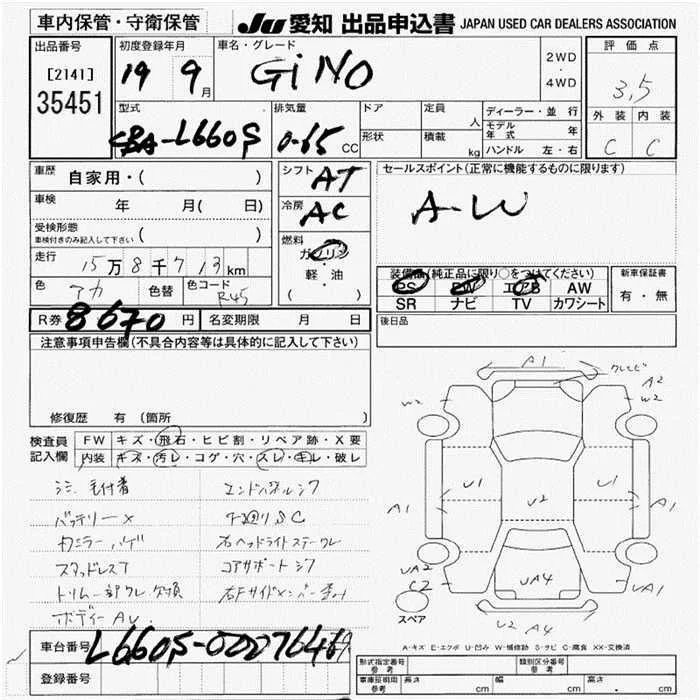 車内保管・守衛保管
JU 愛知 出品申込書 JAPAN USED CAR DEALERS ASSOCIATION
出品番号
[2141]
35451
初度登録年月
19 9月
車名・グレード
GiNO
2WD
・
4WD
評価点
3,5
外装 内装
C C
型式
CBA-L660S
排気量
0.65 CC
ドア
形状
定員 人
積載 kg
ディーラー・並行
モデル年式 年
ハンドル 左・右
車歴
自家用・( )
車検 年 月( 日)
受検形態
車検付きのみ記入して下さい ( )
走行
15万8千713km
色 アカ 色替 色コード R45
シフト AT
冷房 AC
燃料
ガソリン
軽・油
( )
セールスポイント(正常に機能するものに限ります)
A-W
装備品(純正品に限り○をつけてください)
PS PW エアB AW
SR ナビ TV カワシート
新車保証書
有・無
R券 8670円 名変期限 月 日
後日品
注意事項申告欄(不具合内容等は具体的に記入して下さい)
修復歴 有(箇所 )
検査員
記入欄
FW キズ・飛石・ヒビ割・リペア跡・X要
内装 キズ・汚レ・コゲ・穴・スレ・キレ・破レ
シミ 毛付着
エンドパネルシワ
バッテリーX
カニラーハゲ
右ヘッドライトステークレ
スタッドレス7
コアサポートシワ
トリム一部クレ 欠損
右Fサイドメンバー歪み
ボディーAU.
A1
クレビ
A2
W2
W2
A1
U1
U2
U1
A1
UA2
C2
UA4
UA1
U2 A4
スペア
A-キズ E-エクボ U-凹み W-補修跡 S-サビ C-腐食 XX-交換済
車台番号 L660S-0007646
登録番号
形式指定番号
参考
類別区分番号
参考
車庫証明用
参考
長さ cm 幅 cm 高さ cm